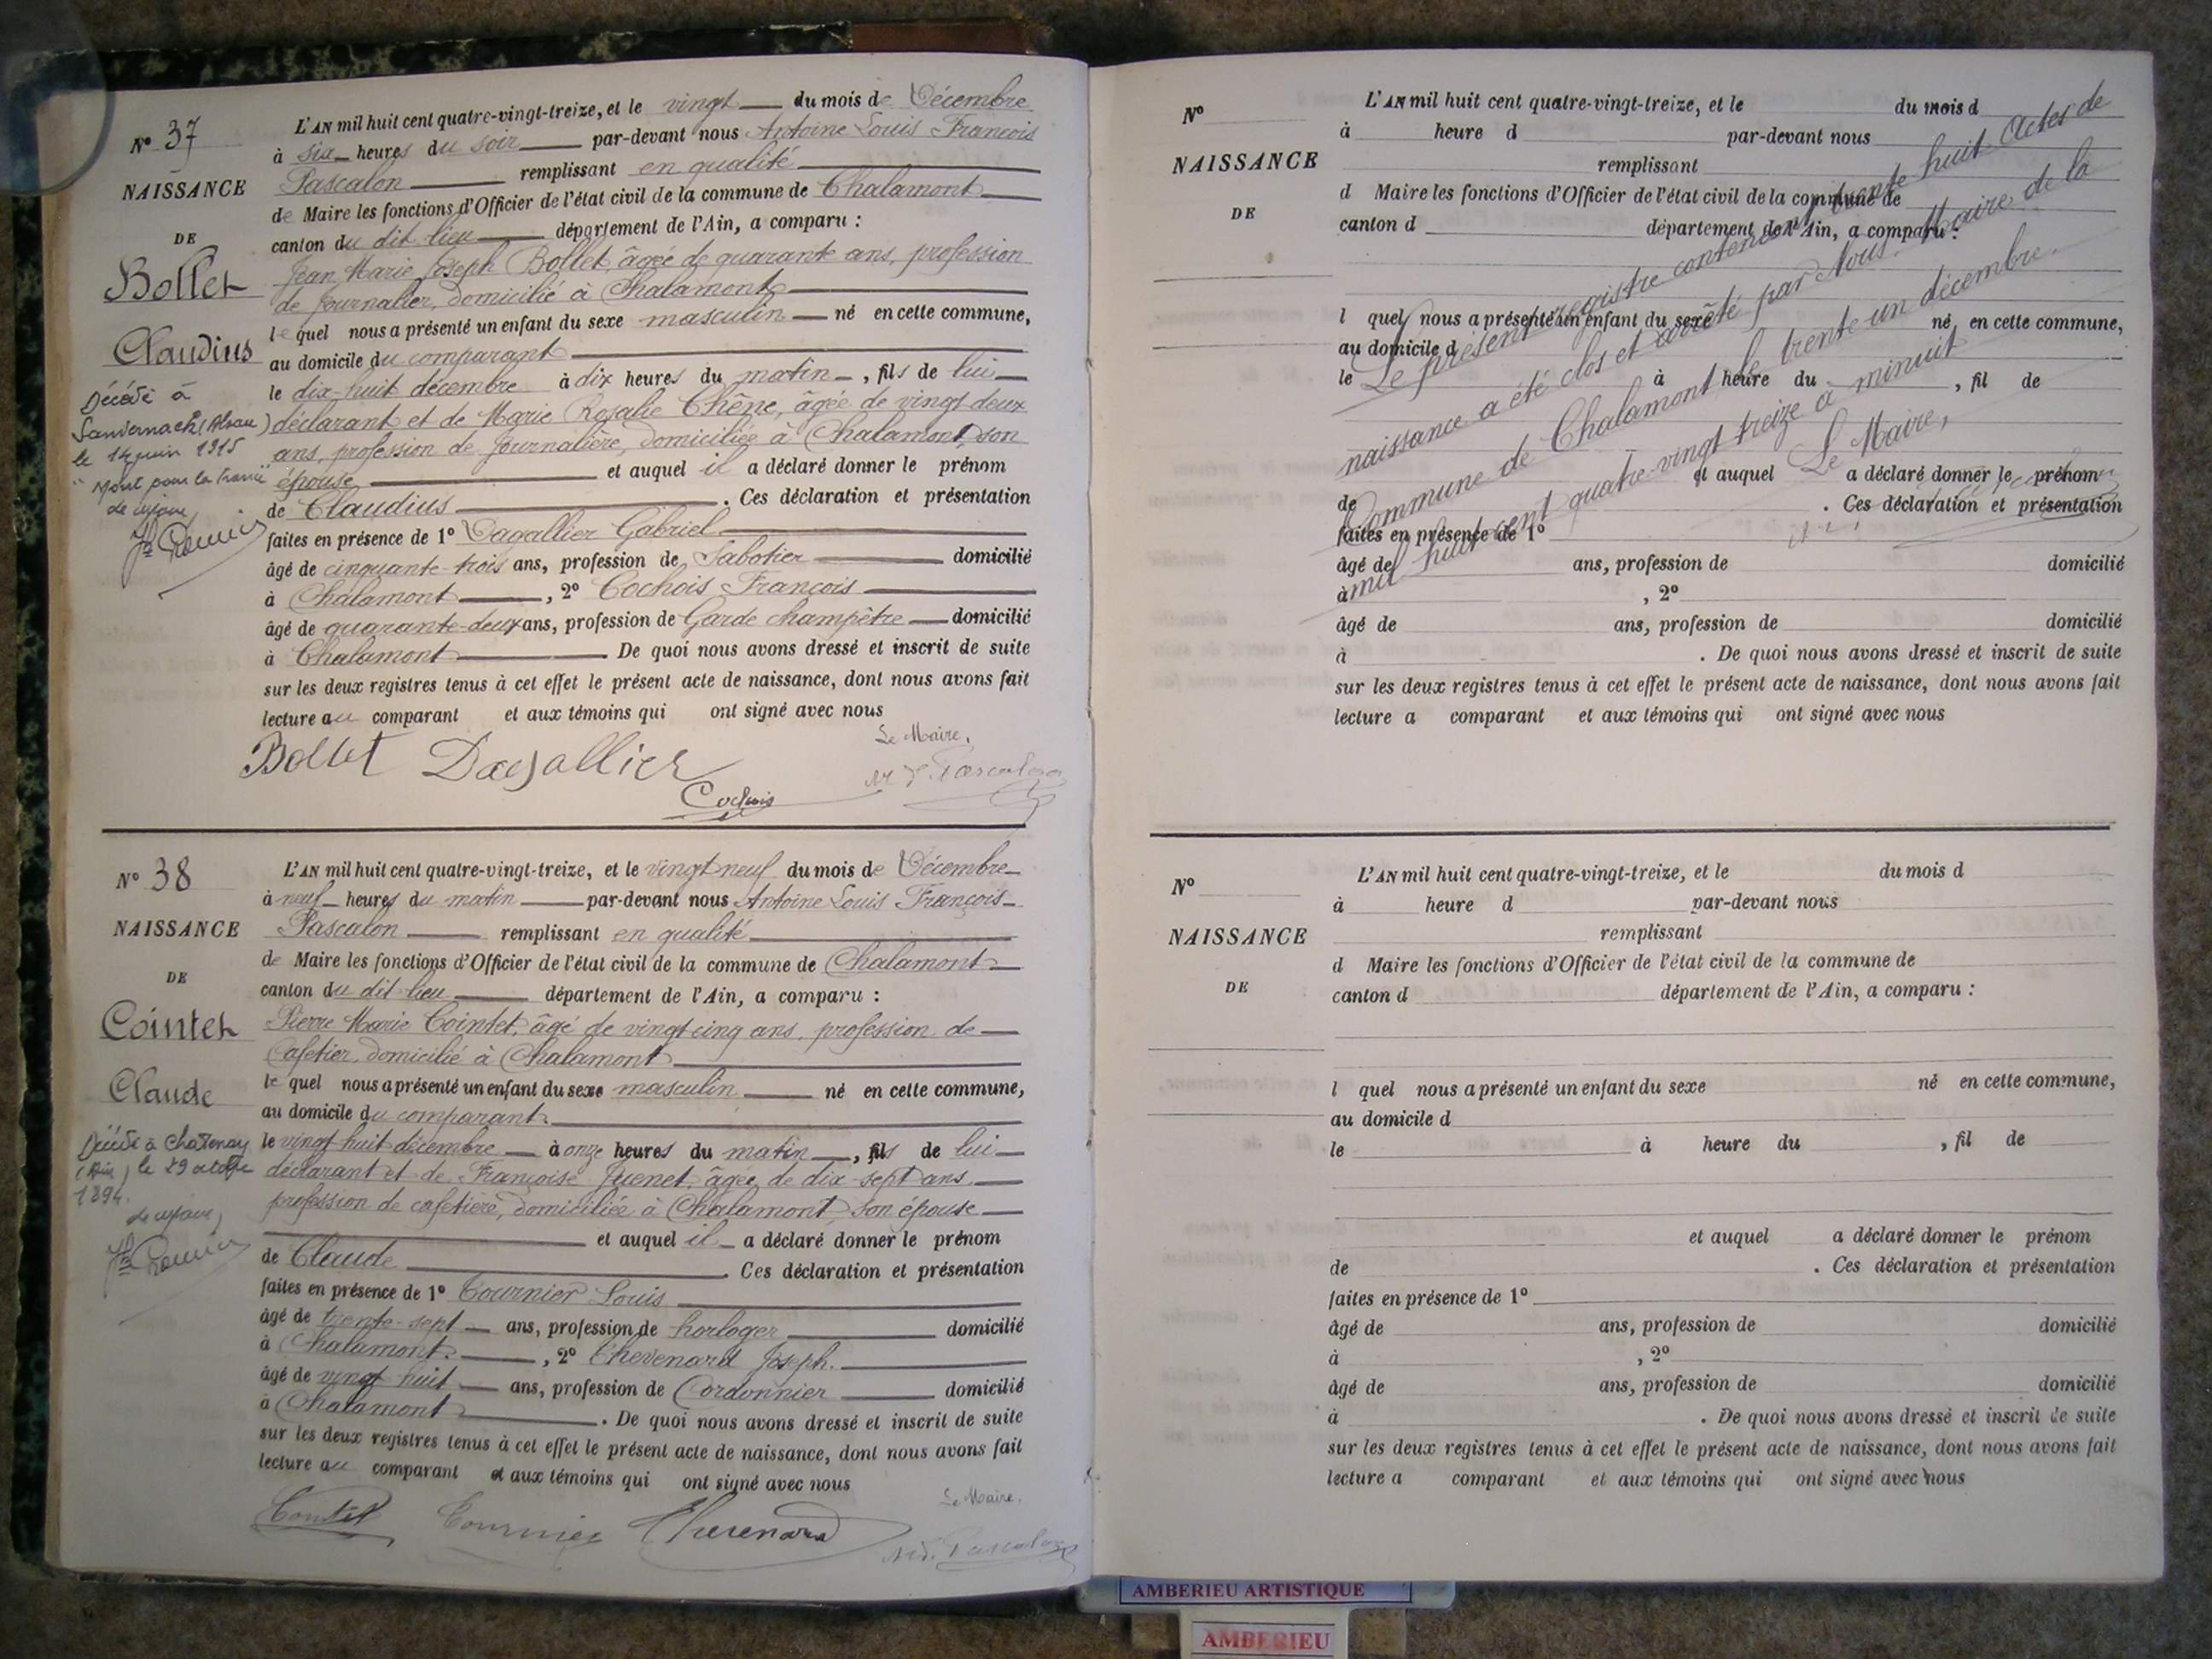 L'AN mil huit cent quatre-vingt-treize, et le vingt du mois de Décembre
N° 37
à six heures du soir par-devant nous Antoine Louis François
NAISSANCE
Pascalon remplissant en qualité
de Maire les fonctions d'Officier de l'état civil de la commune de Chalamont
DE
canton du dit lieu département de l'Ain, a comparu :
Bollet
Jean Marie Joseph Bollet, âgée de quarante ans, profession
de Journalier, domicilié à Chalamont
Claudius
le quel nous a présenté un enfant du sexe masculin né en cette commune,
au domicile du comparant
le dix-huit décembre à dix heures du matin, fils de lui
déclarant et de Marie Rosalie Chêne, âgée de vingt deux
ans, profession de Journalière, domiciliée à Chalamont, son
épouse et auquel il a déclaré donner le prénom
de Claudius. Ces déclaration et présentation
Décédé à
le 14 juin 1915
Mort pour la France
faites en présence de 1° Dagallier Gabriel
âgé de cinquante-trois ans, profession de Sabotier domicilié
à Chalamont, 2° Cochois François
âgé de quarante-deux ans, profession de Garde champêtre domicilié
à Chalamont De quoi nous avons dressé et inscrit de suite
sur les deux registres tenus à cet effet le présent acte de naissance, dont nous avons fait
lecture au comparant et aux témoins qui ont signé avec nous
Le Maire,
Bollet Dagallier
Cochois
Pascalon
N° 38
L'AN mil huit cent quatre-vingt-treize, et le vingt neuf du mois de Décembre
à neuf heures du matin par-devant nous Antoine Louis François
NAISSANCE
Pascalon remplissant en qualité
de Maire les fonctions d'Officier de l'état civil de la commune de Chalamont
DE
canton du dit lieu département de l'Ain, a comparu :
Cointet
Pierre Marie Cointet, âgé de vingt cinq ans, profession de
Cafetier, domicilié à Chalamont
Claude
le quel nous a présenté un enfant du sexe masculin né en cette commune,
au domicile du comparant
le vingt huit décembre à onze heures du matin, fils de lui
déclarant et de Françoise Juenet, âgée de dix-sept ans
profession de cafetière, domiciliée à Chalamont, son épouse
et auquel il a déclaré donner le prénom
de Claude. Ces déclaration et présentation
Décédé à Chatenay
(Ain) le 29 octobre
1894.
faites en présence de 1° Tournier Louis
âgé de trente-sept ans, profession de horloger domicilié
à Chalamont, 2° Chevenard Joseph.
âgé de vingt huit ans, profession de Cordonnier domicilié
à Chalamont. De quoi nous avons dressé et inscrit de suite
sur les deux registres tenus à cet effet le présent acte de naissance, dont nous avons fait
lecture au comparant et aux témoins qui ont signé avec nous
Le Maire.
Cointet Tournier Chevenard
Pascalon
L'AN mil huit cent quatre-vingt-treize, et le du mois d
N°
à heure d par-devant nous
NAISSANCE
remplissant
d Maire les fonctions d'Officier de l'état civil de la commune de
DE
canton d département de l'Ain, a comparu :
l quel nous a présenté un enfant du sexe né en cette commune,
au domicile d
le à heure du , fil de
et auquel a déclaré donner le prénom
de . Ces déclaration et présentation
faites en présence de 1°
âgé de ans, profession de domicilié
à , 2°
âgé de ans, profession de domicilié
à . De quoi nous avons dressé et inscrit de suite
sur les deux registres tenus à cet effet le présent acte de naissance, dont nous avons fait
lecture a comparant et aux témoins qui ont signé avec nous
Le présent registre contenant trente huit Actes de
naissance a été clos et arrêté par Nous Maire de la
Commune de Chalamont le trente un décembre
mil huit cent quatre-vingt treize à minuit
Le Maire,
L'AN mil huit cent quatre-vingt-treize, et le du mois d
N°
à heure d par-devant nous
NAISSANCE
remplissant
d Maire les fonctions d'Officier de l'état civil de la commune de
DE
canton d département de l'Ain, a comparu :
l quel nous a présenté un enfant du sexe né en cette commune,
au domicile d
le à heure du , fil de
et auquel a déclaré donner le prénom
de . Ces déclaration et présentation
faites en présence de 1°
âgé de ans, profession de domicilié
à , 2°
âgé de ans, profession de domicilié
à . De quoi nous avons dressé et inscrit de suite
sur les deux registres tenus à cet effet le présent acte de naissance, dont nous avons fait
lecture a comparant et aux témoins qui ont signé avec nous
AMBERIEU ARTISTIQUE
AMBERIEU